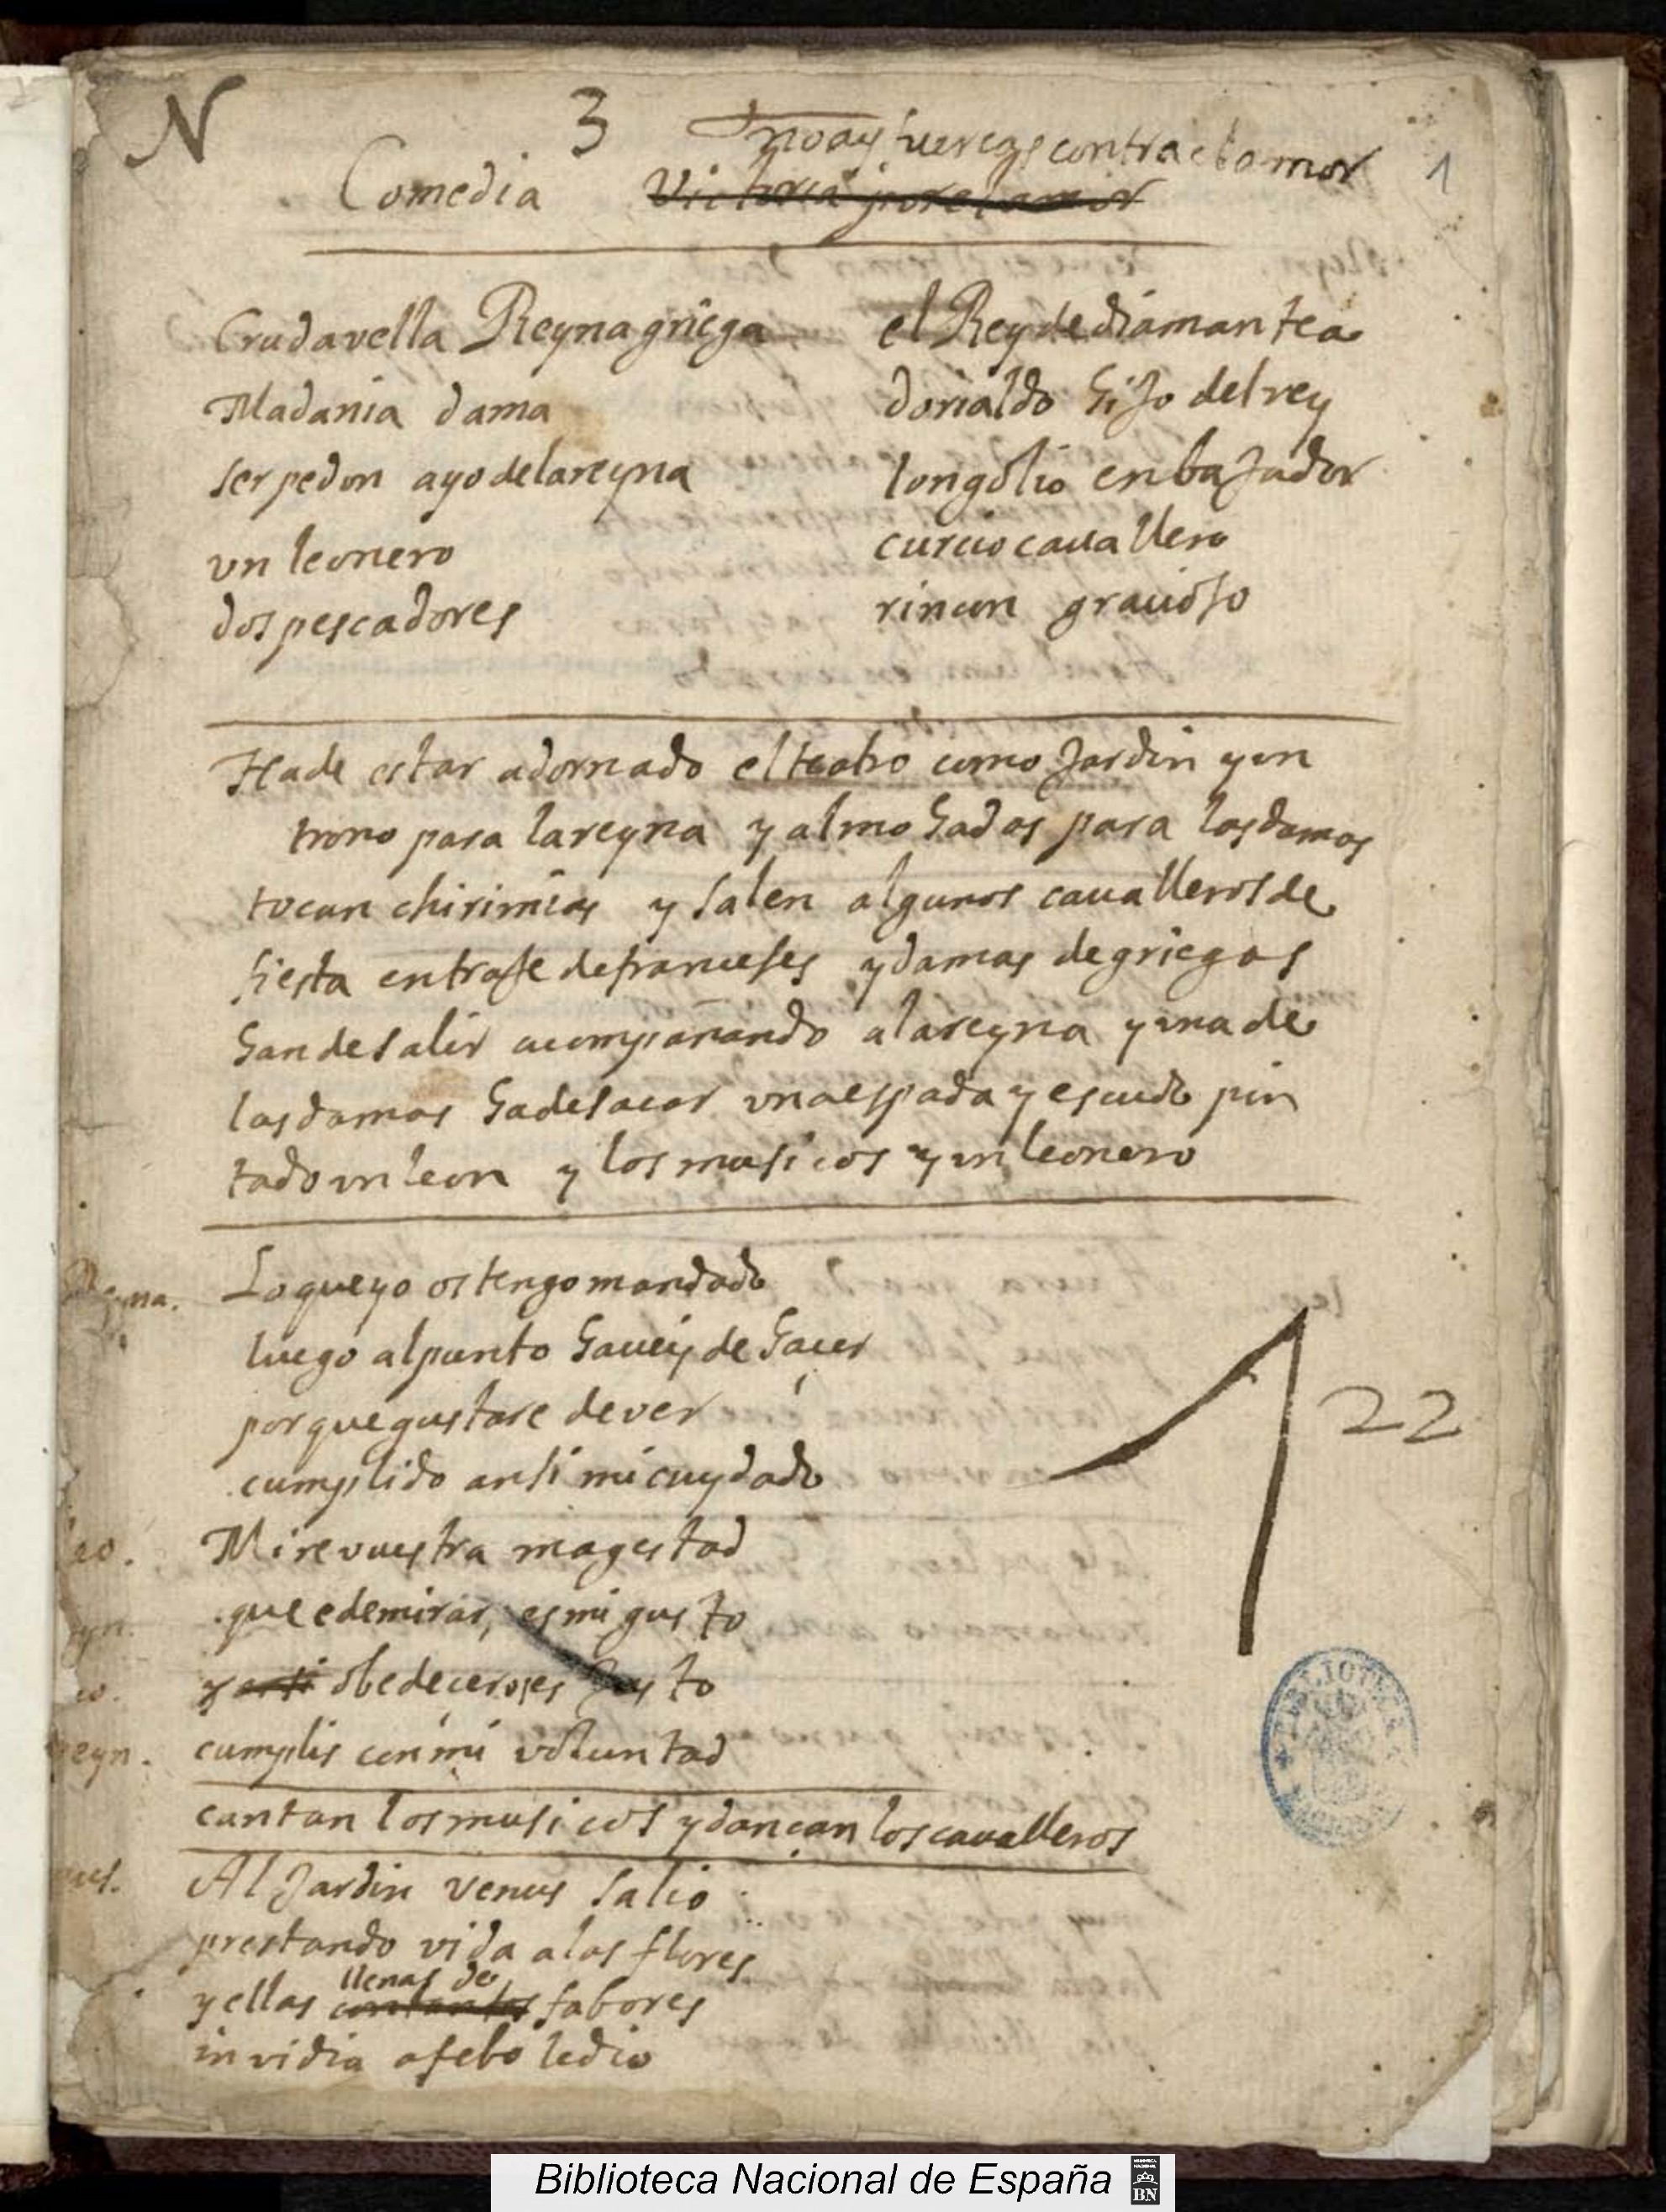 N
3
no ay fuerças contra el amor
1
Comedia Victoria por el amor
Crudavella Reyna griega
el Rey de diamantea
Madania dama
dorialdo hijo del rey
serpedon ayo de la reyna
longolio enbajador
un leonero
curcio cauallero
dos pescadores
rincon gracioso
Ha de estar adornado el teatro como Jardin y un
trono para la reyna y almohadas para las damas
tocan chirimias y salen algunos caualleros de
fiesta en traje de franceses y damas de griegas
han de salir acompañando a la reyna y una de
las damas ha de sacar una espada y escudo pin
tado un leon y los musicos y un leonero
Reyna. Lo que yo os tengo mandado
luego al punto haueis de hacer
porque gustare de ver
cumplido ansi mi cuydado
leo. Mire vuestra magestad
reyn. que e de mirar, es mi gusto
leo. y ansi obedeceros es justo
reyn. cumplis con mi voluntad
cantan los musicos y dançan los caualleros
mus. Al Jardin venus salio
prestando vida a las flores
llenas de
y ellas con tantos fabores
invidia a febo le dio
22
BIBLIOTECA NACIONAL
Biblioteca Nacional de España
BIBLIOTECA NACIONAL
BN